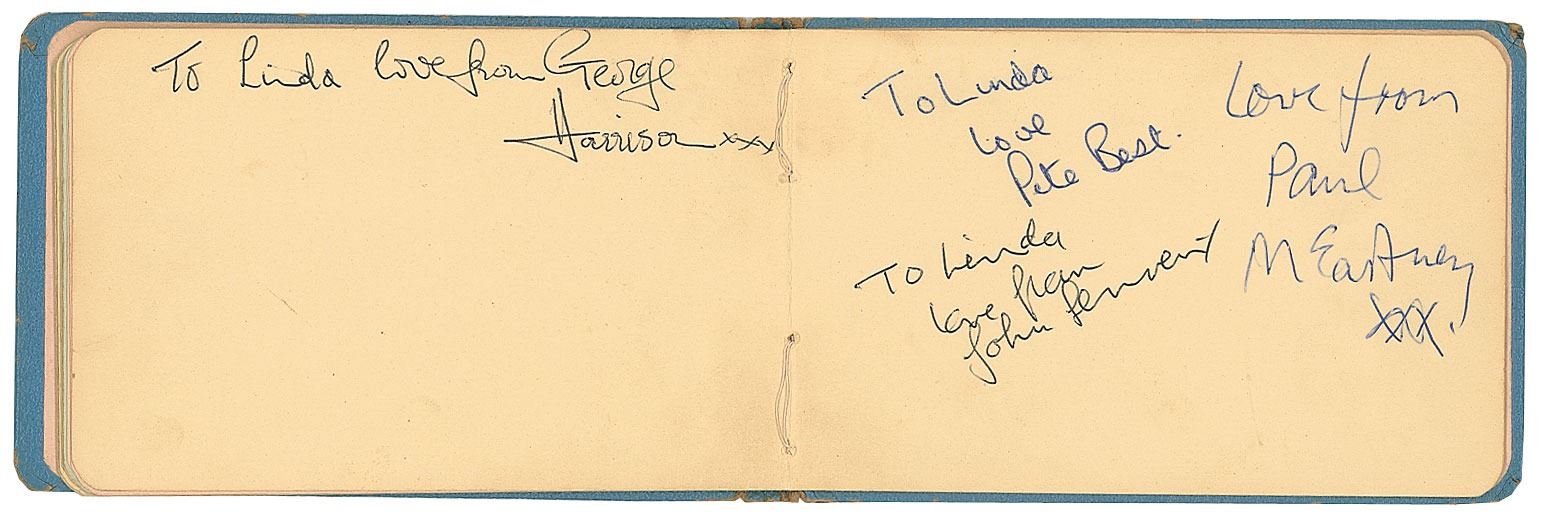 To Linda love from George
Harrison xxx
To Linda
love
Pete Best.
To Linda
love from
John Lennon
Love from
Paul
McCartney
xxx.